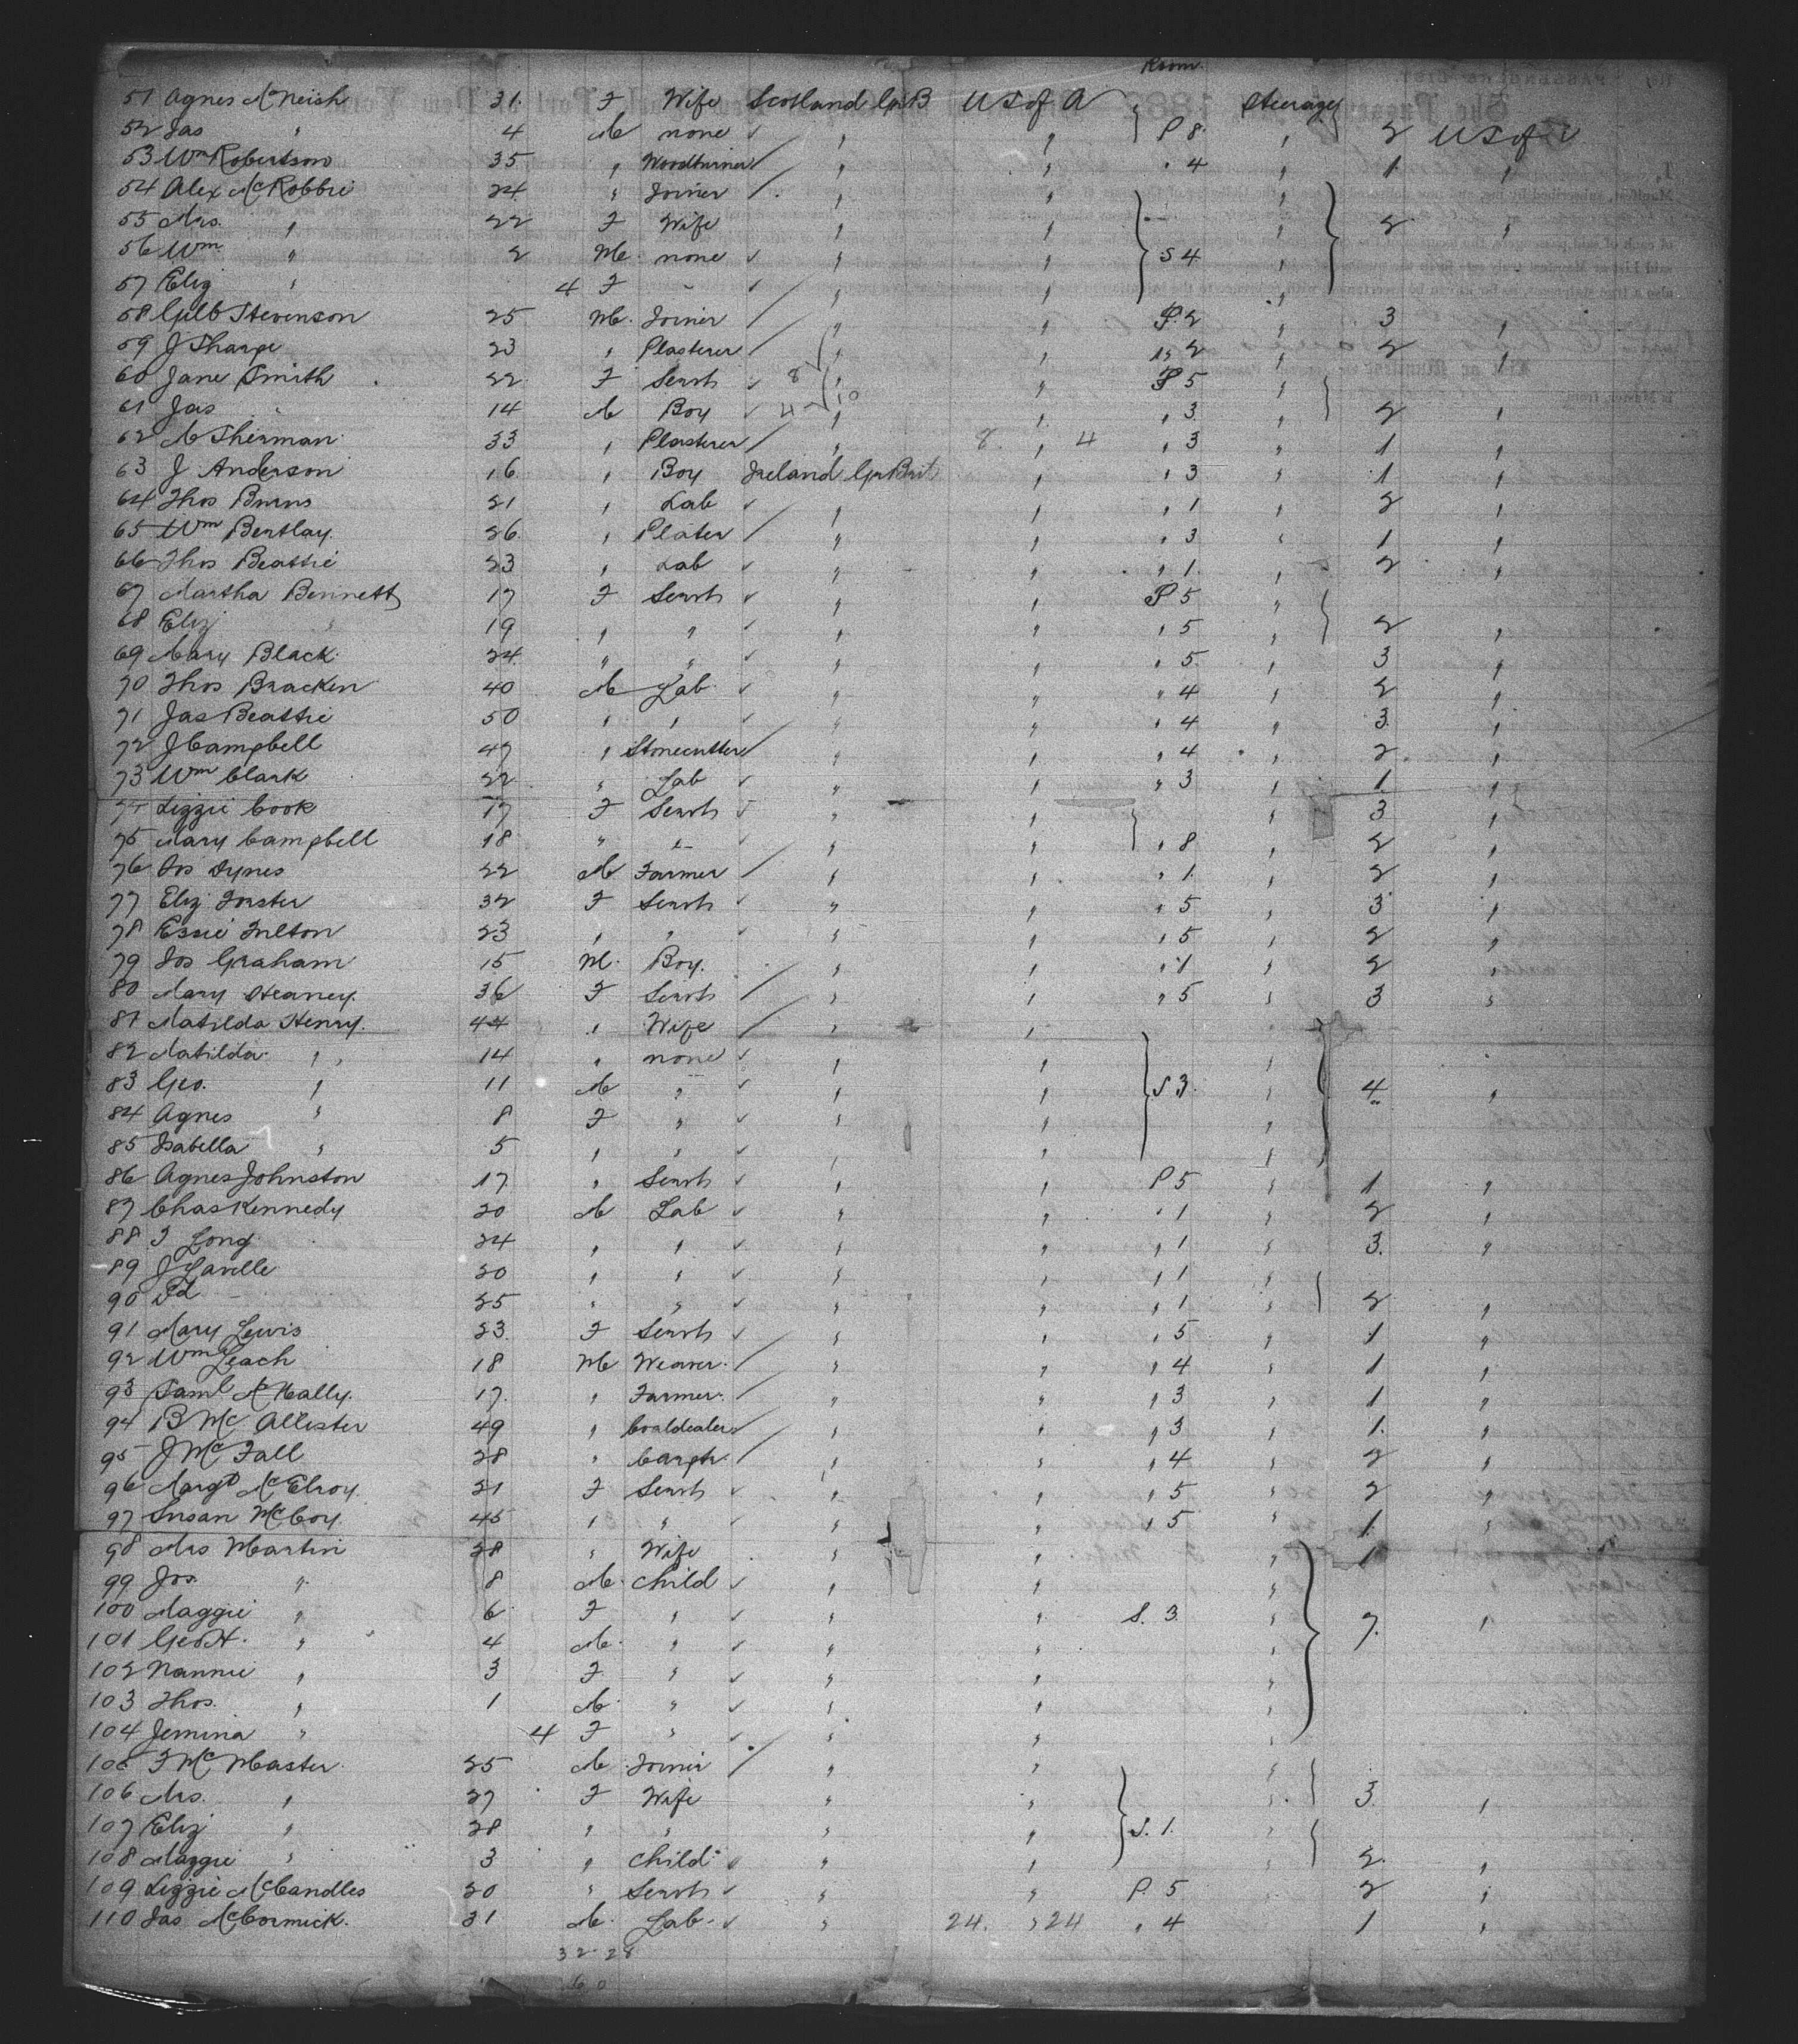 Room
51 Agnes McNeish 31 F Wife Scotland Gr B U S of A Steerage
52 Jas " 4 M none " " P 8 " 2 U S of A
53 Wm Robertson 35 " Woodturner " " " 4 " 1 "
54 Alex McRobbie 24 " Joiner " " "
55 Mrs. " 22 F Wife " " " 2 "
56 Wm " 2 M none " " S 4 "
57 Eliz " 4 F " " " "
58 Gilb Stevenson 25 M Joiner " " P. 2 " 3 "
59 J Sharpe 23 " Plasterer " " " 2 " 2 "
60 Jane Smith 22 F Servt 8 " " P 5 "
61 Jas " 14 M Boy 4 10 " " " 3 " 2 "
62 M Sherman 33 " Plasterer " 8 " 4 " 3 " 1 "
63 J Anderson 16 " Boy Ireland Gr Brit " " 3 " 1 "
64 Thos Burns 21 " Lab " " " 1 " 2 "
65 Wm Bentlay 26 " Plater " " " 3 " 1 "
66 Thos Beattie 23 " Lab " " " 1 " 2 "
67 Martha Bennett 17 F Servt " " P 5 "
68 Eliz " 19 " " " " " 5 " 2 "
69 Mary Black 24 " " " " " 5 " 3 "
70 Thos Bracken 40 M Lab " " " 4 " 2 "
71 Jas Beattie 50 " " " " " 4 " 3 "
72 J Campbell 47 " Stonecutter " " " 4 " 2 "
73 Wm Clark 22 " Lab " " " 3 " 1 "
74 Lizzie Cook 17 F Servt " " " 3 "
75 Mary Campbell 18 " " " " " 8 " 2 "
76 Jos Dynes 22 M Farmer " " " 1 " 2 "
77 Eliz Forster 32 F Servt " " " 5 " 3 "
78 Essie Fulton 23 " " " " " 5 " 2 "
79 Jos Graham 15 M Boy " " 1 " 2 "
80 Mary Heaney 36 F Servt " " " 5 " 3 "
81 Matilda Henry 44 " Wife " "
82 Matilda " 14 " none " " "
83 Geo. " 11 M " " " S 3 " 4 "
84 Agnes " 8 F " " " "
85 Isabella " 5 " " " " "
86 Agnes Johnston 17 " Servt " " P 5 " 1 "
87 Chas Kennedy 20 M Lab " " " 1 " 2 "
88 F Long 24 " " " " " 1 " 3 "
89 J Lavelle 20 " " " " " 1 "
90 Pd 25 " " " " " 1 " 2 "
91 Mary Lewis 23 F Servt " " " 5 " 1 "
92 Wm Leach 18 M Weaver " " " 4 " 1 "
93 Saml McNally 17 " Farmer " " " 3 " 1 "
94 B McAllister 49 " Coaldealer " " " 3 " 1 "
95 J McFall 28 " Carptr " " " 4 " 2 "
96 Margt McElroy 21 F Servt " " " 5 " 2 "
97 Susan McCoy 45 " " " " " 5 " 1 "
98 Mrs Martin 28 " Wife " " " 1
99 Jos. " 8 M Child " " "
100 Maggie " 6 F " " " S. 3 " 7 "
101 Geo H. " 4 M " " " "
102 Nannie " 3 F " " " "
103 Thos. " 1 M " " " "
104 Jemina " 4 F " " "
105 F McMaster 25 M Joiner " " "
106 Mrs. " 27 F Wife " " " 3 "
107 Eliz " 28 " " " " S. 1. "
108 Maggie " 3 " Child " " 2 "
109 Lizzie McCandles 20 " Servt " " P 5 2 "
110 Jas McCormick 31 M Lab " 24. " 24 " 4 1 "
32 28
60